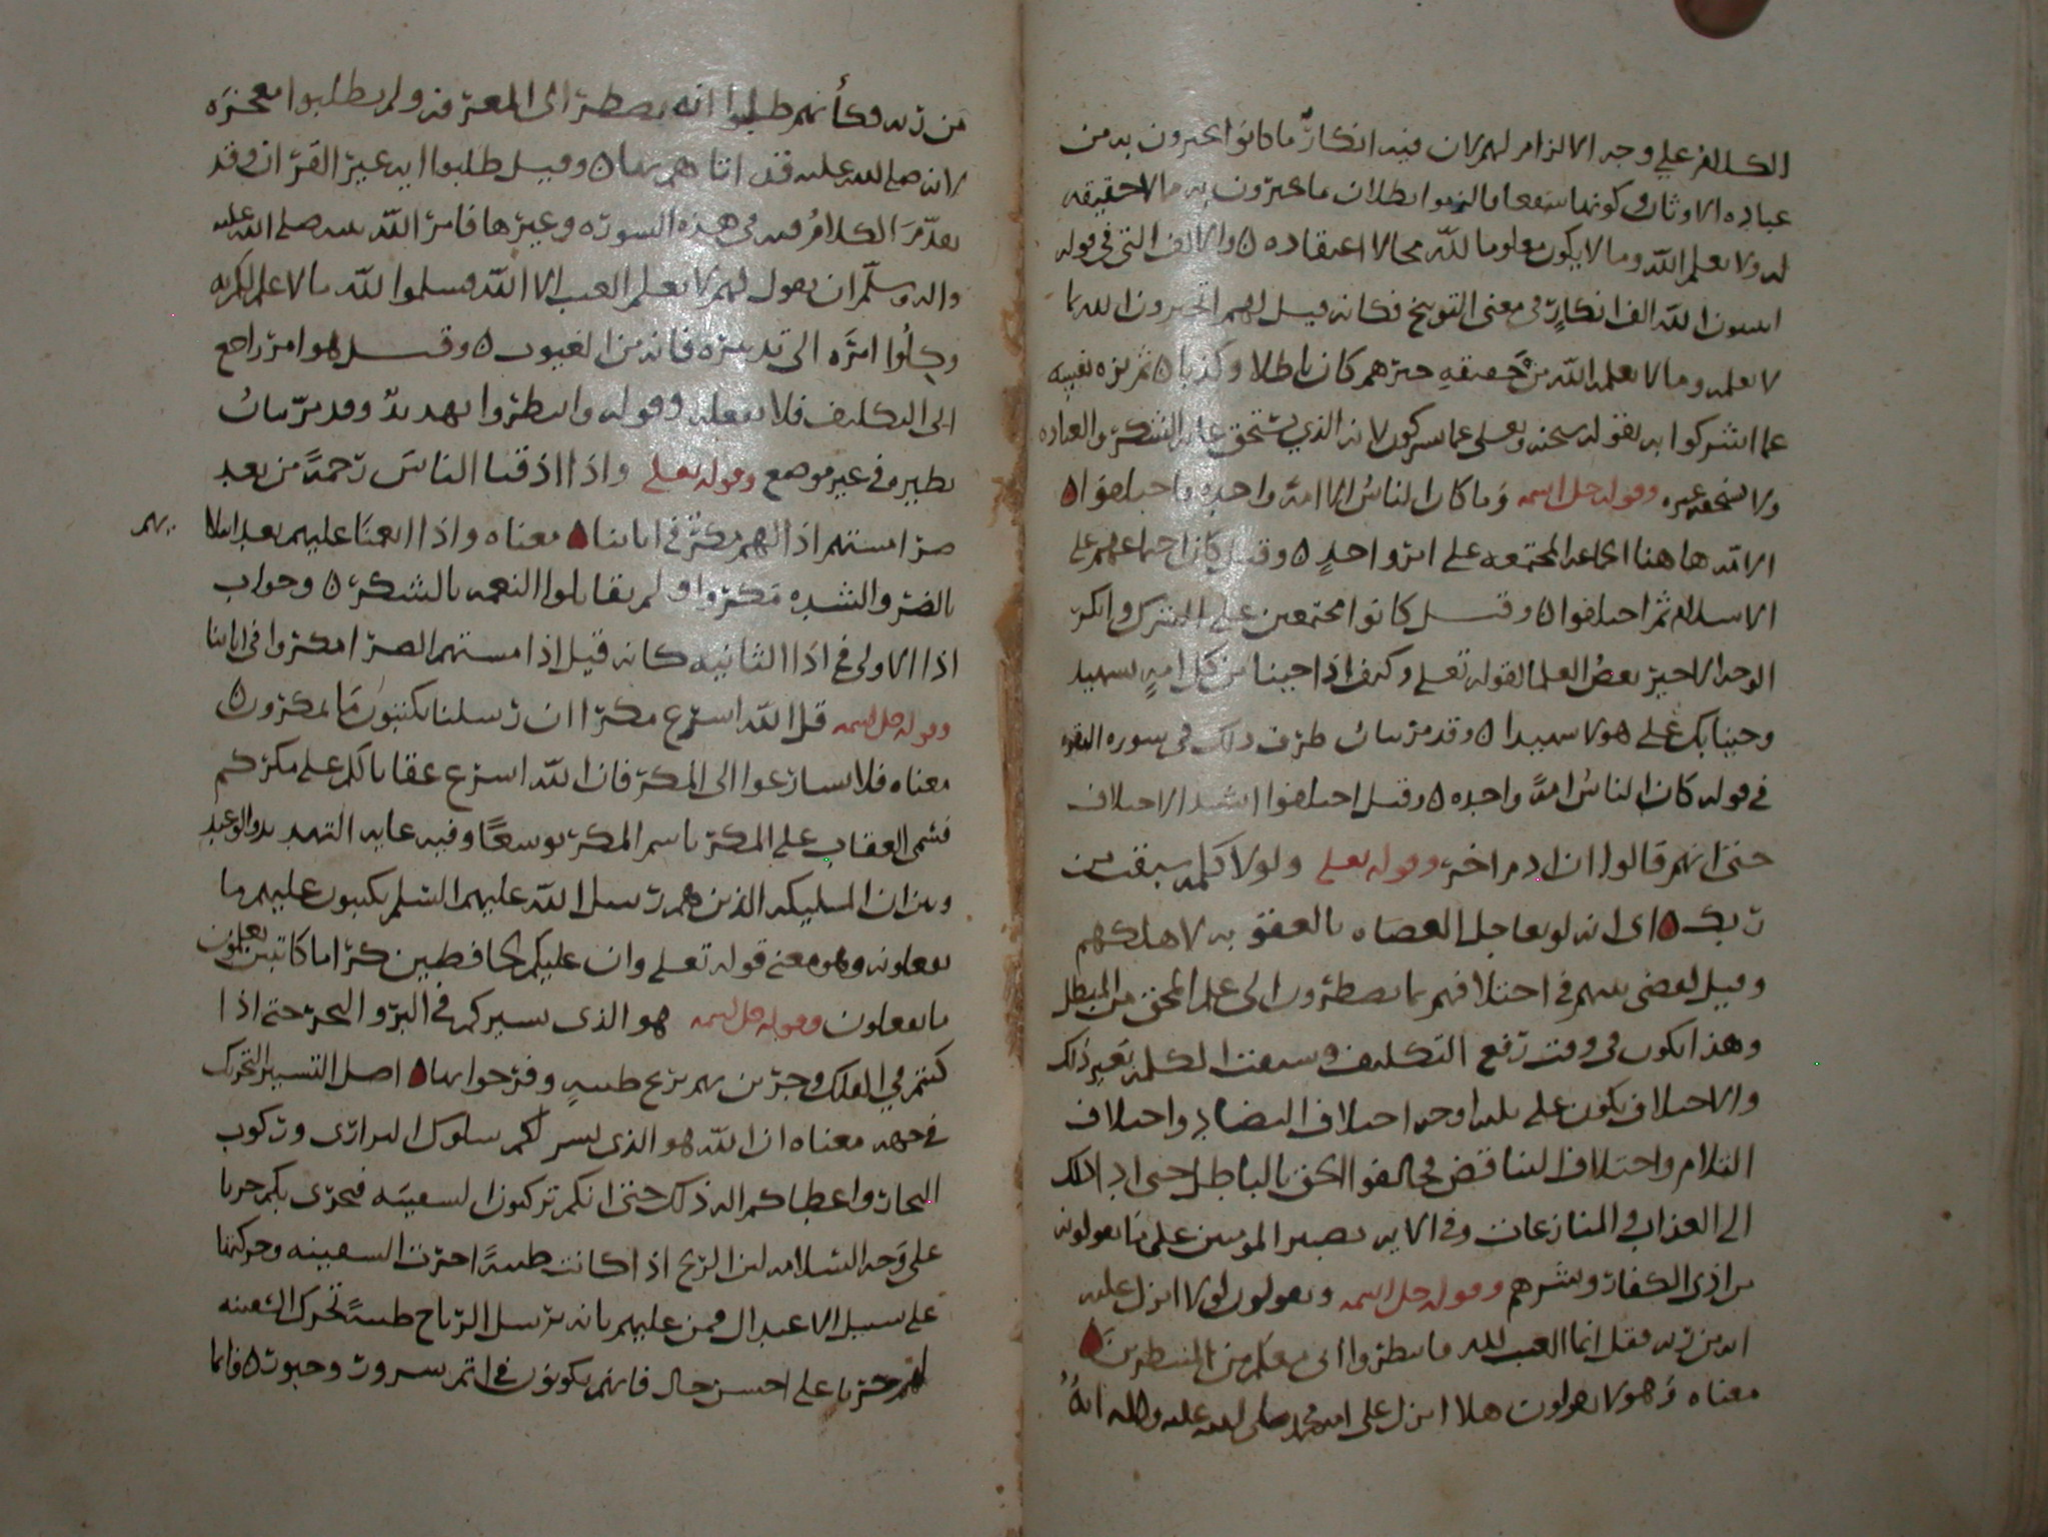 الكلام على وجه الالزام لهم لان فيه انكار ما كانوا يخبرون به من
عباده الاوثان وكونها شفعا فالزموا بطلان ما يخبرون به مالا حقيقه
له ولا يعلم الله وما لا يكون معلوما لله محالا اعتقاده ٥ والالف التي في قوله
اتنبون الله الف انكارٍ في معنى التوبيخ فكانه قيل لهم اتخبرون الله بما
لا يعلمه وما لا يعلمه الله من حقيقه خبرهم كان باطلا وكذبا ٥ ثم نزه نفسه
عما اشركوا به بقوله سبحنه وتعلى عما يشركون لانه الذي يستحق غايه الشكر والعباده
ولا يستحقه غيره وقوله جل اسمه وما كان الناسُ الا امة واحده فاختلفوا ٥
الامه هاهنا الجماعه المجتمعه على امرٍ واحدٍ ٥ وقيل كان اجتماعهم على
الاسلام ثم اختلفوا ٥ وقيل كانوا مجتمعين على الشرك وانكر
الوجه الاخير بعضُ العلما لقوله تعلى وكيف اذا جينا من كل امهٍ بشهيد
وجينا بك على هولا شهيدا ٥ وقد مر بيان طرف ذلك في سورة البقره
في قوله كان الناسُ امةً واحده ٥ وقيل اختلفوا اشد الاختلاف
حتى انهم قالوا ان ادم اخر وقوله تعلى ولولا كلمه سبقت من
ربك ٥ اى انه لو يعاجل العصاه بالعقوبه لاهلكهم
وقيل لقضى بينهم في اختلافهم بما يضطرون الى علم المحق من المبطل
وهذا يكون في وقت رفع التكليف وسبقت الكلمه بغير ذلك
والاختلاف يكون على ثلثه اوجه اختلاف التضاد واختلاف
التلام واختلاف التناقض فخالفوا الحق بالباطل حتى اد ا ذلك
الى العذاب والمنازعات وفي الايه تصبير المومنين على ما يقولونه
من اذى الكفار وبشرهم وقوله جل اسمه ويقولون لولا انزل عليه
ايه من ربه فقل انما الغيب لله فانتظروا انى معكم من المنتظرين ٥
معناه وهولا يقولون هلا انزل على محمد صلى الله عليه واله ايهٌ
من ربه فكأنهم طلبوا انه يضطر الى المعرفه ولم يطلبوا معجزه
لانه صلى الله عليه قد اتاهم بها ٥ وقيل طلبوا ايه غير القران وقد
تقدّم الكلامُ فيه في هذه السوره وغيرها فامر الله نبيه صلى الله عليه
واله وسلم ان يقول لهم لا يعلم الغيب الا الله فسلموا لله ما لا علم لكم به
وكلوا امرَه الى تدبيره فانه من الغيوب ٥ وقيل هو امر راجع
الى التكليف فلا يفعله وقوله وانتظروا تهديدٌ وقد مرّ بيانُ
نظيره في غير موضع وقوله تعلى واذا اذقنا الناسَ رحمةً من بعد
ضرا مستهم اذا لهم مكرٌ في اياتنا ٥ معناه واذا انعمنا عليهم بعد ابتلا
يهم
بالضر والشده مكروا ولم يقابلوا النعمه بالشكر ٥ وجواب
اذا الاولى في اذا الثانيه كانه قيل اذا مستهم الضرا مكروا في اياتنا
وقوله جل اسمه قل الله اسرع مكرا ان رسلنا يكتبون ما يمكرون ٥
معناه فلا تسارعوا الى المكر فان الله اسرع عقابا لكم على مكركم
فسمى العقاب على المكر باسم المكر توسعًا وفيه غايه التهديد والوعيد
وبين ان المليكه الذين هم رسل الله عليهم السلم يكتبون عليهم ما
يفعلونه وهو معنى قوله تعلى وان عليكم لحافظين كراما كاتبين يعلمون
ما يفعلون وقوله جل اسمه هو الذى يسيركم في البر والبحر حتى اذا
كنتم في الفلك وجرين بهم بريح طيبهٍ وفرحوا بها ٥ اصل التسيير التحريك
في جهه معناه ان الله هو الذى يسر لكم سلوك البرارى وركوب
البحار واعطاكم اله ذلك حتى انكم تركبون السفينه فتجرى بكم جريا
على وجه السلامه لين الريح اذا كانت طيبةً اجرت السفينه وحركتها
على سبيل الاعتدال فمن عليهم بانه يرسل الرياح طيبةً تحرك السفينه
لهم حريا على احسن حال فانهم يكونون في اتم سرور وحبور ٥ فانما